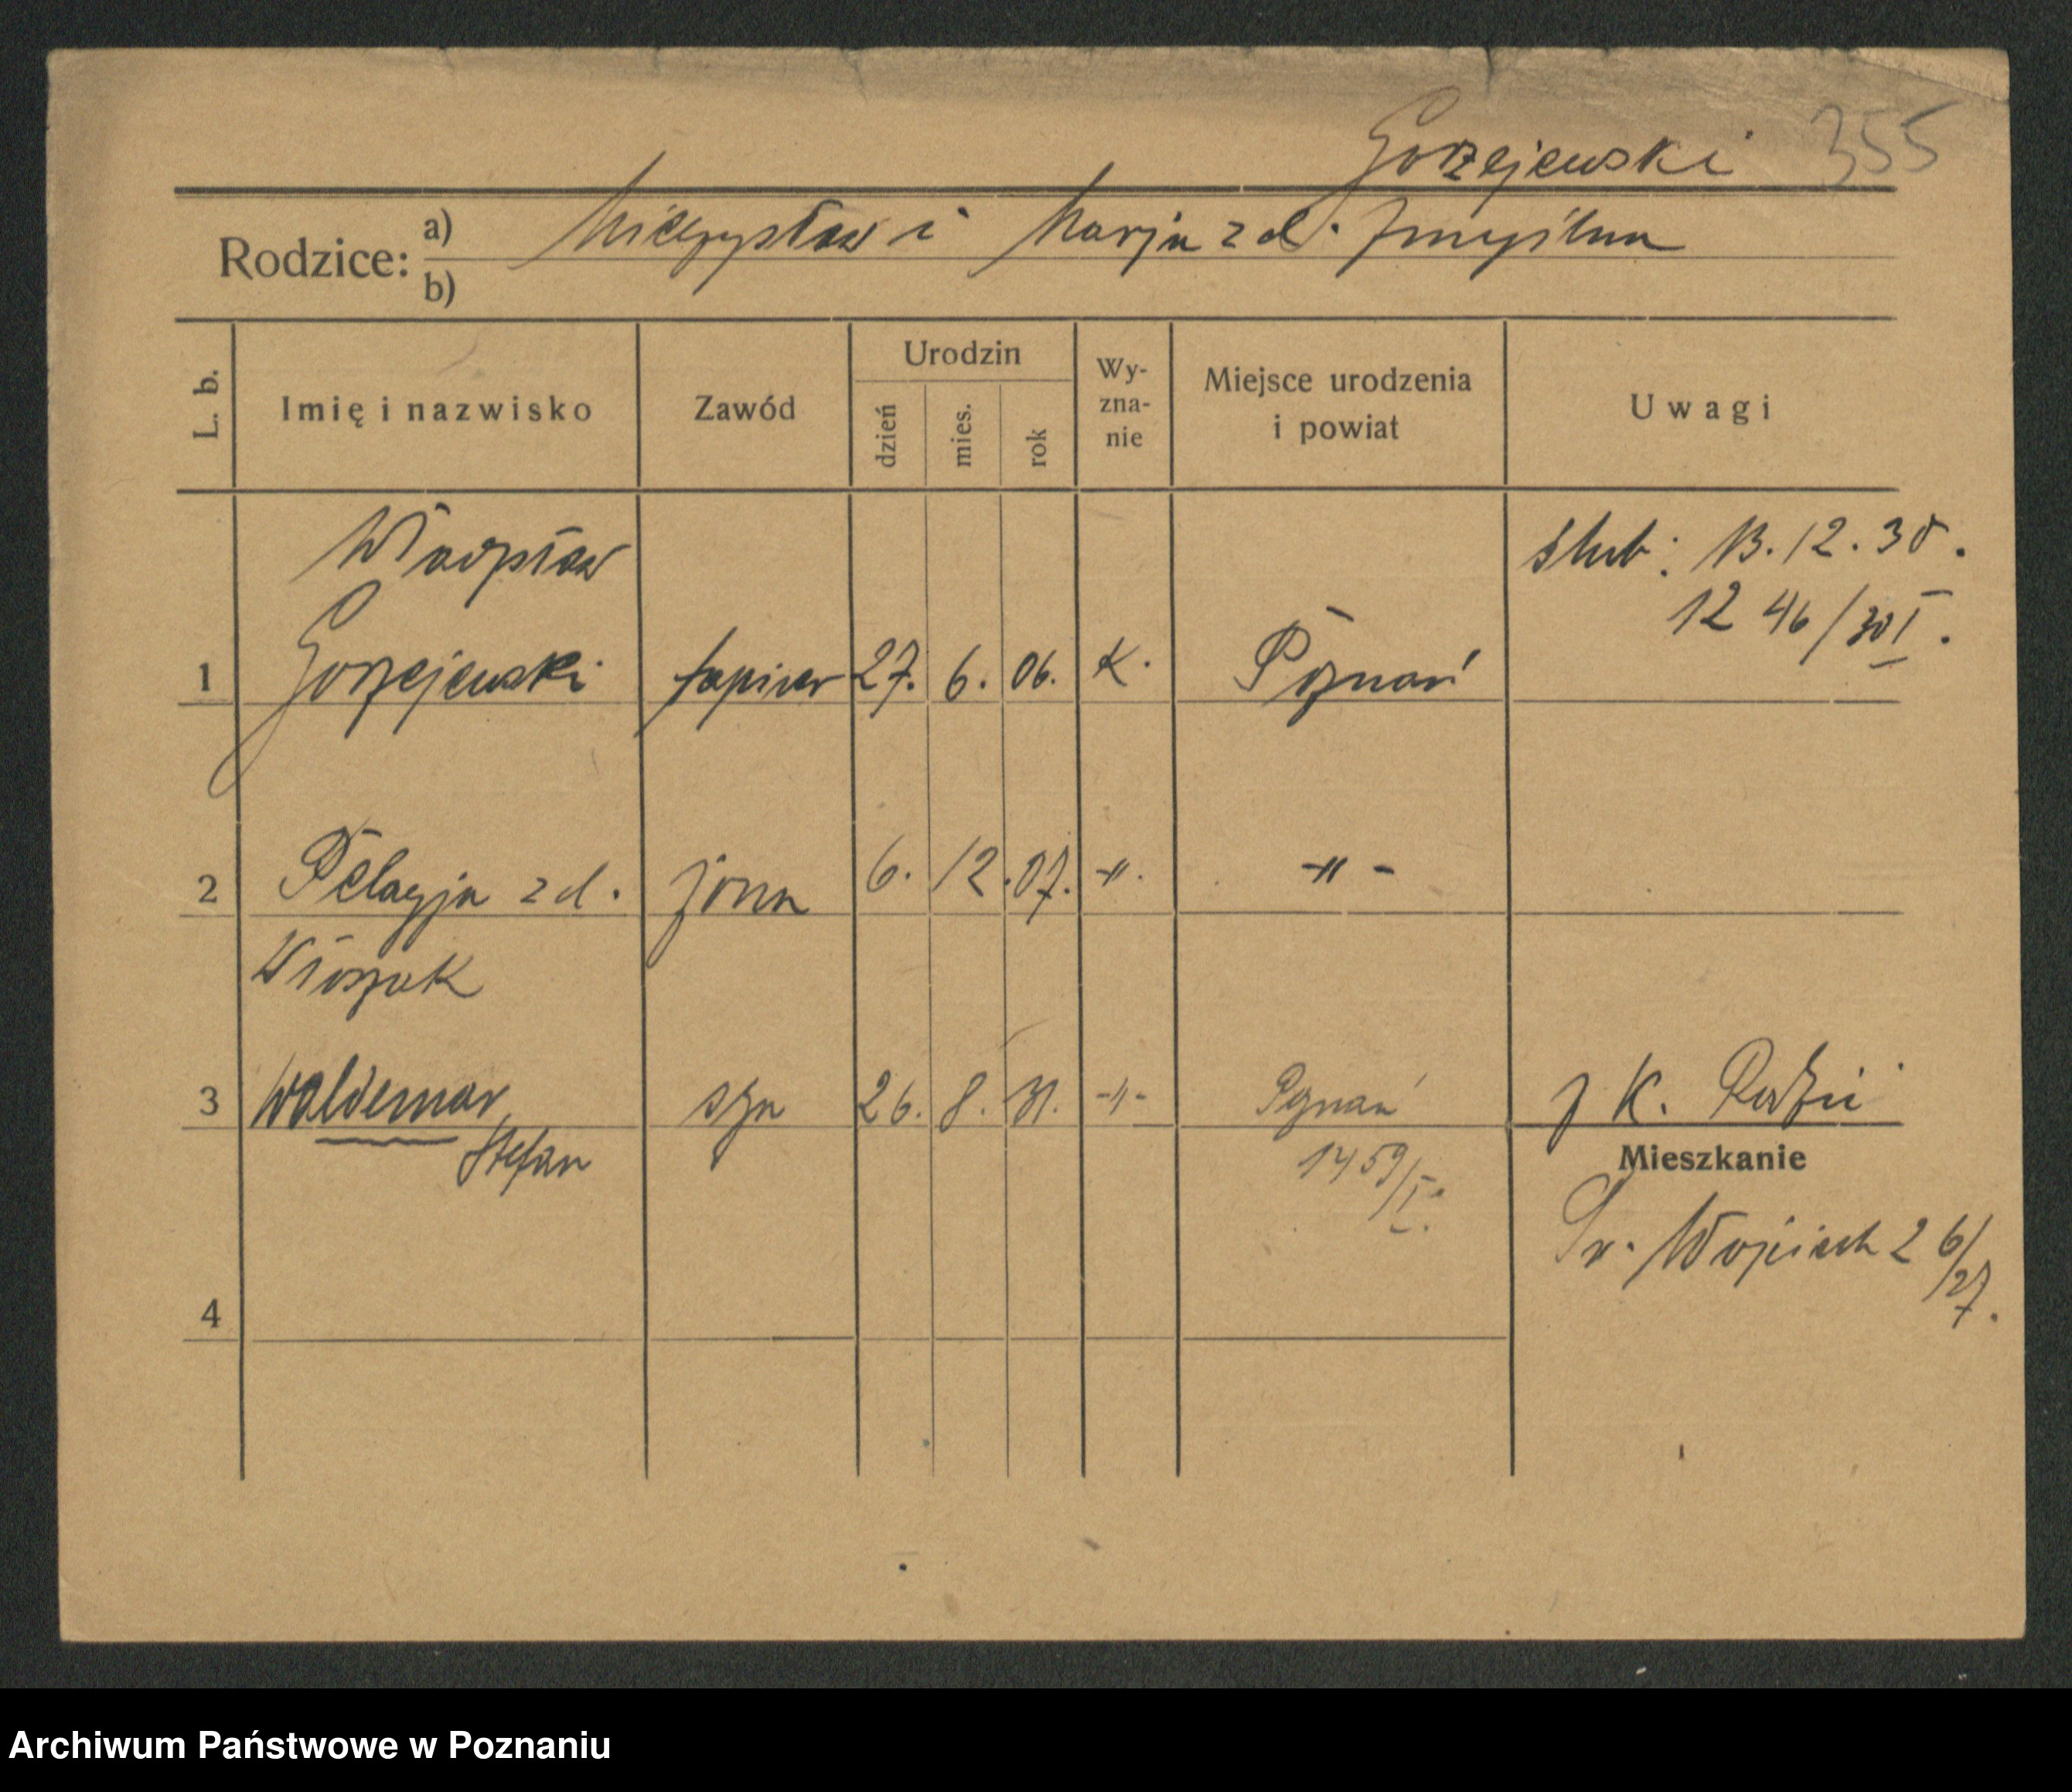 Gorzejewski 355
Rodzice: a) Mieczysław i Marja z d. Zmyślna
b)
L. b. Imię i nazwisko Zawód Urodzin dzień mies. rok Wy-zna-nie Miejsce urodzenia i powiat Uwagi
Władysław ślub: 13.12.30.
1246/30 I.
1 Gorzejewski tapicer 27. 6. 06. K. Poznań
2 Pelagja z d. żona 6. 12. 07. -"- -"-
Włoszak
3 Waldemar syn 26. 8. 31. -"- Poznań K.
Stefan 1459/I.
Mieszkanie
Św. Wojciech 26/27.
4
Archiwum Państwowe w Poznaniu